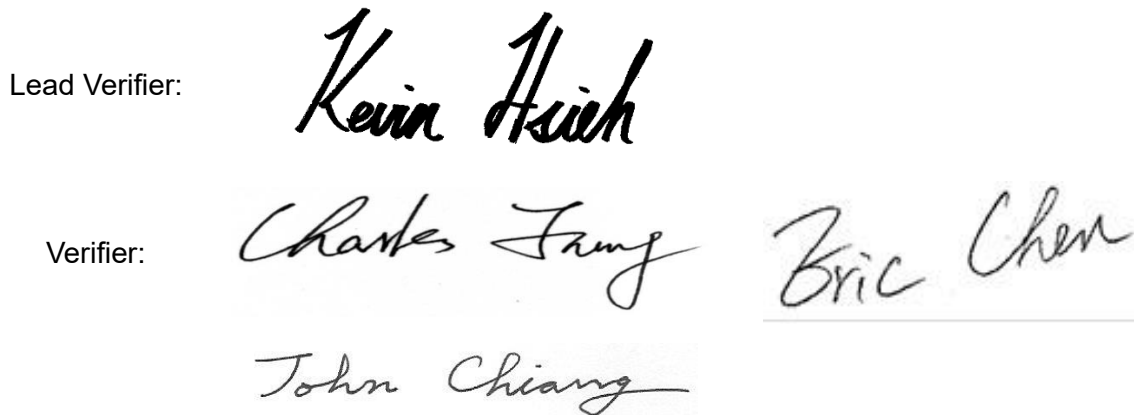 Lead Verifier: Kevin Hsieh
Verifier: Charles Eric Chen
John Chiang